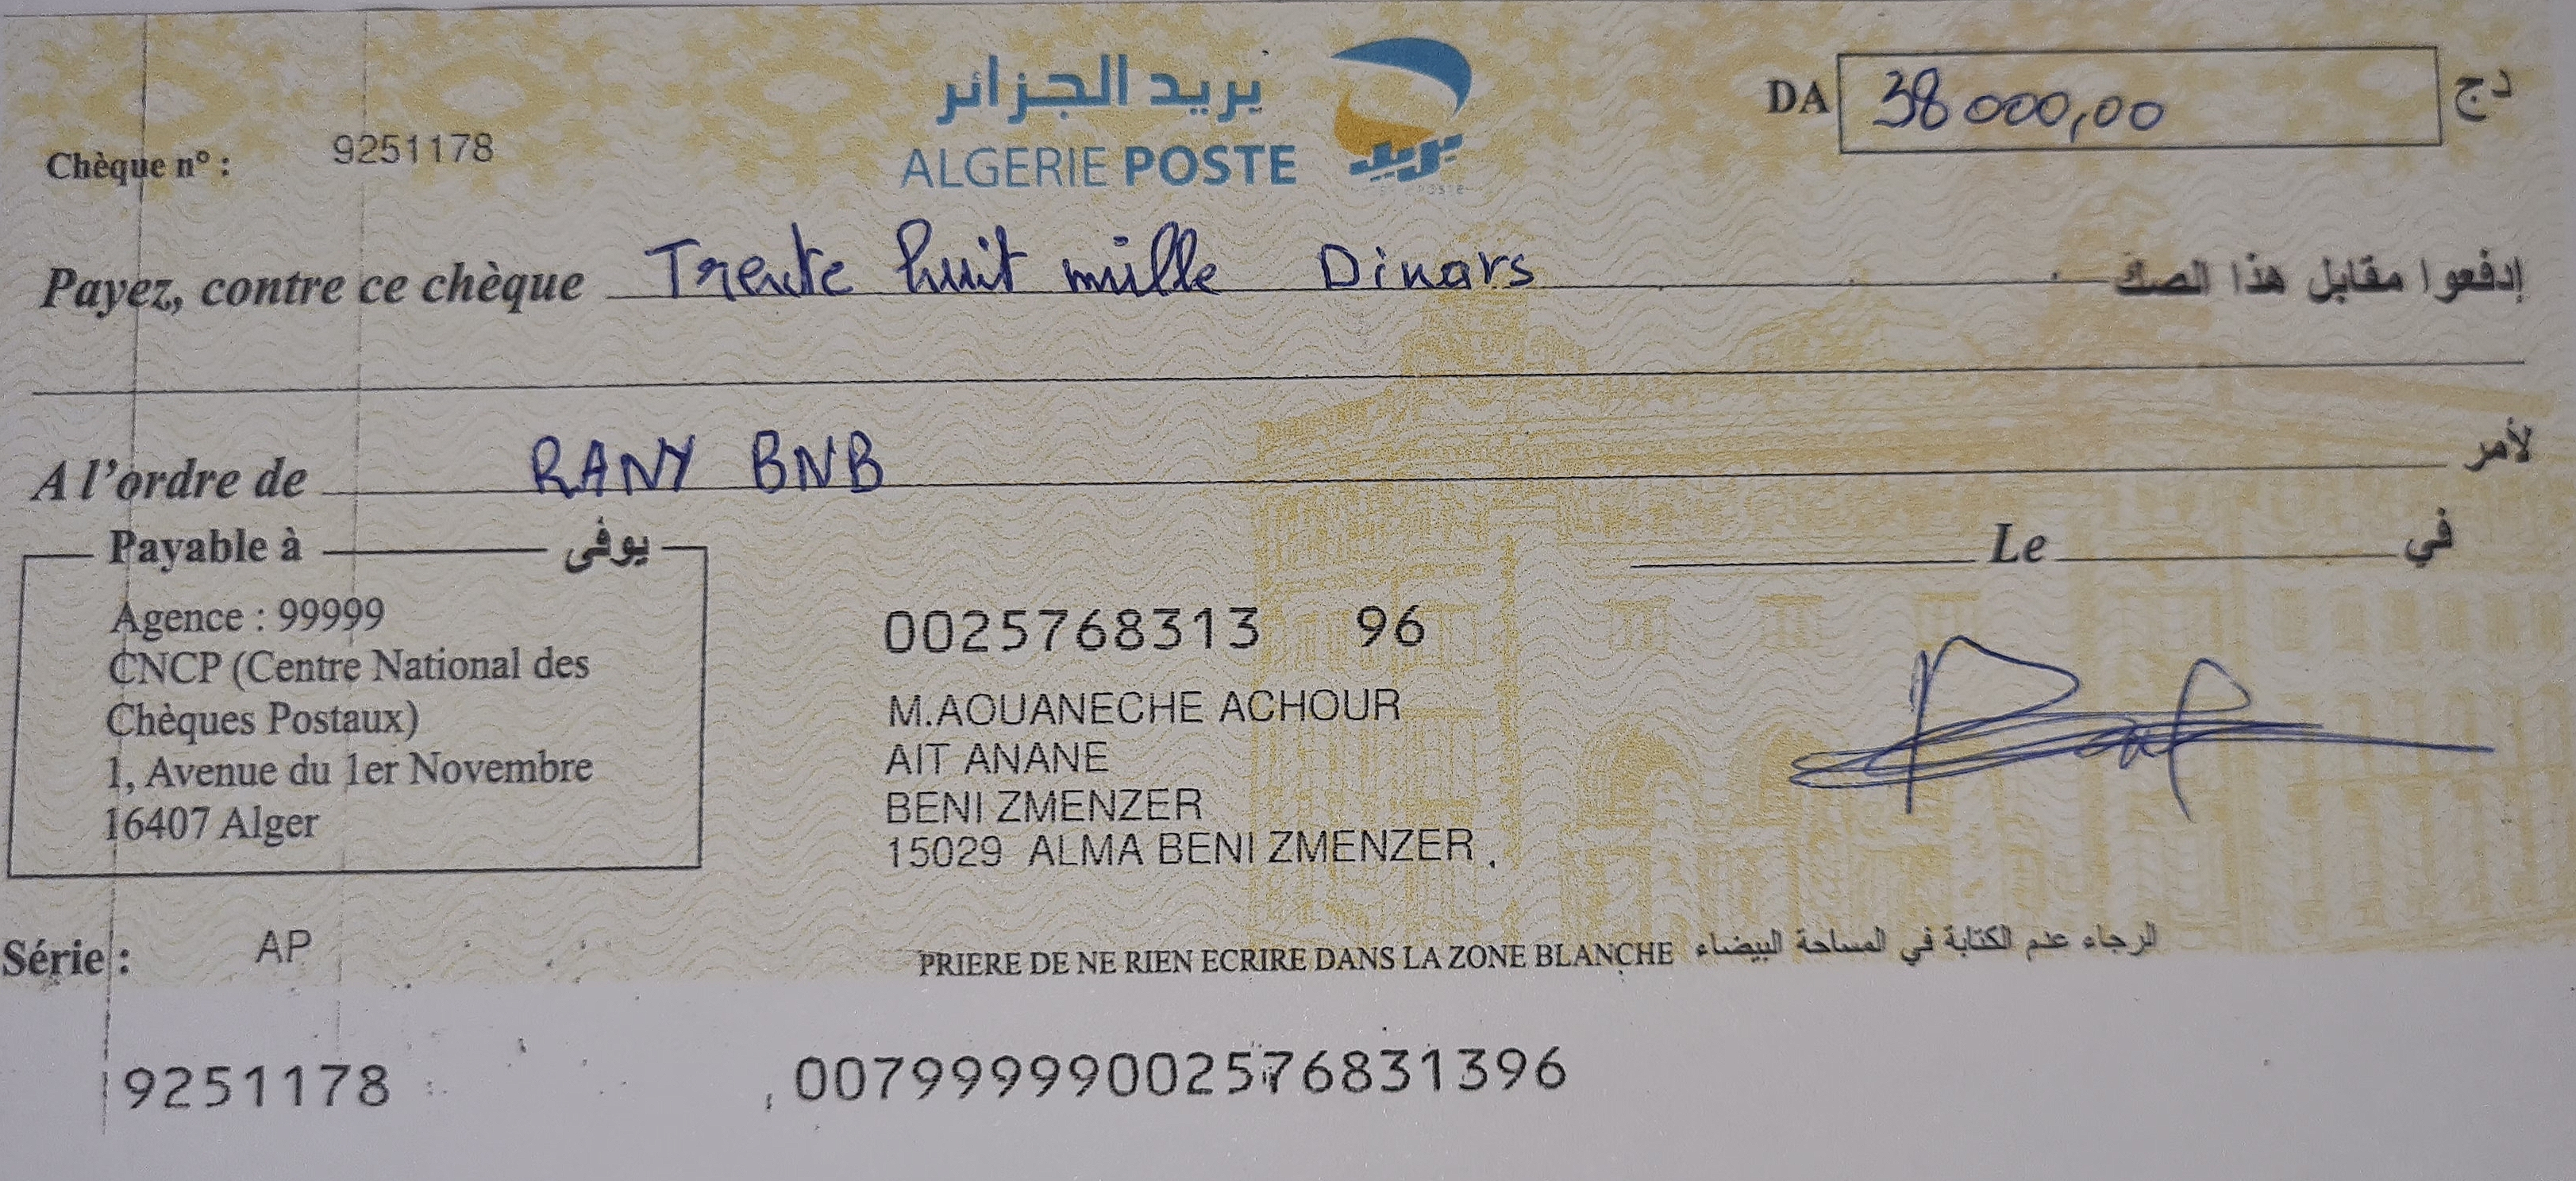 بريد الجزائر
ALGERIE POSTE
بريد
DA 38 000,00 دج
Chèque n° : 9251178
Payez, contre ce chèque Trente huit mille Dinars إدفعوا مقابل هذا الصك
A l'ordre de RANY BNB لأمر
Payable à يوفى
Le في
Agence : 99999
CNCP (Centre National des
Chèques Postaux)
1, Avenue du 1er Novembre
16407 Alger
0025768313 96
M.AOUANECHE ACHOUR
AIT ANANE
BENI ZMENZER
15029 ALMA BENI ZMENZER
Série : AP
PRIERE DE NE RIEN ECRIRE DANS LA ZONE BLANCHE الرجاء عدم الكتابة في المساحة البيضاء
9251178 00799999002576831396